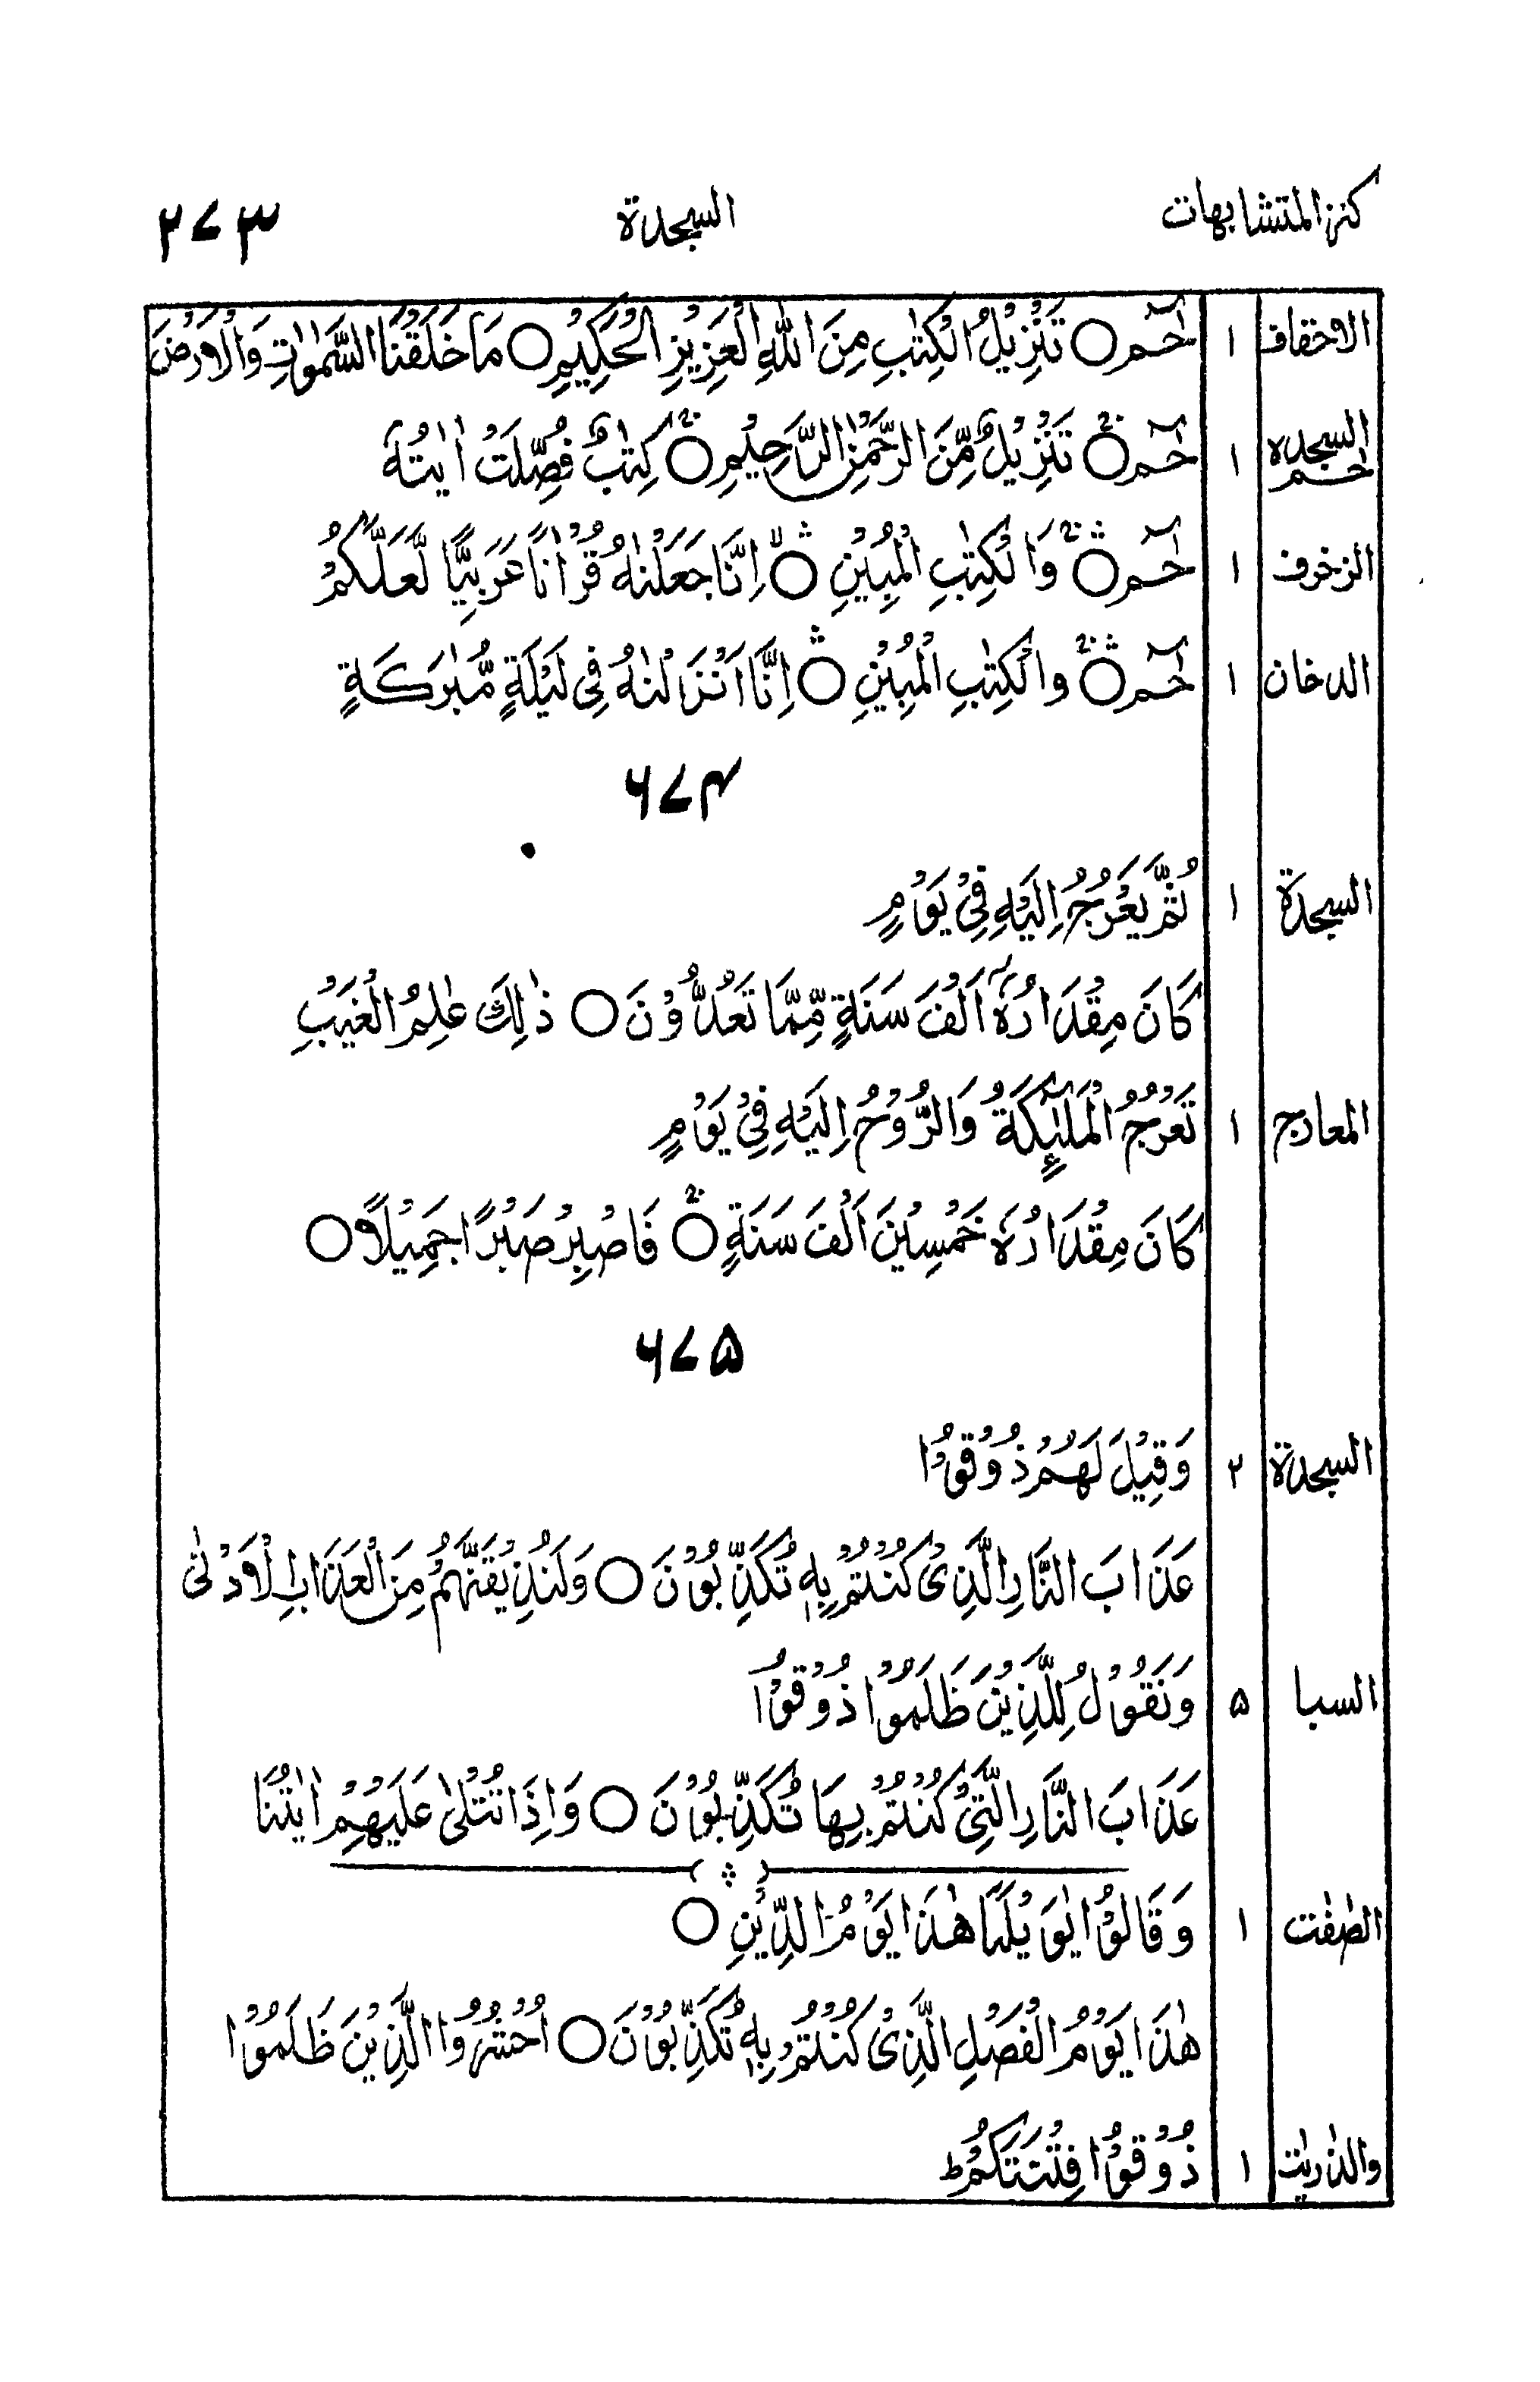 كنز المتشابهات السجدة ۲۷۳
الاحقاف ۱ حٰمٓ ○ تَنْزِيْلُ الْكِتٰبِ مِنَ اللّٰهِ الْعَزِيْزِ الْحَكِيْمِ ○ مَا خَلَقْنَا السَّمٰوٰتِ وَالْاَرْضَ
السجدہ حٰمٓ ۱ حٰمٓ ○ تَنْزِيْلٌ مِّنَ الرَّحْمٰنِ الرَّحِيْمِ ○ كِتٰبٌ فُصِّلَتْ اٰيٰتُهٗ
الزخرف ۱ حٰمٓ ○ وَالْكِتٰبِ الْمُبِيْنِ ○ اِنَّا جَعَلْنٰهُ قُرْاٰنًا عَرَبِيًّا لَّعَلَّكُمْ
الدخان ۱ حٰمٓ ○ وَالْكِتٰبِ الْمُبِيْنِ ○ اِنَّا اَنْزَلْنٰهُ فِى لَيْلَةٍ مُّبٰرَكَةٍ
۶۷۴
السجدة ۱ ثُمَّ يَعْرُجُ اِلَيْهِ فِىْ يَوْمٍ
كَانَ مِقْدَارُهٗٓ اَلْفَ سَنَةٍ مِّمَّا تَعُدُّوْنَ ○ ذٰلِكَ عٰلِمُ الْغَيْبِ
المعارج ۱ تَعْرُجُ الْمَلٰٓئِكَةُ وَالرُّوْحُ اِلَيْهِ فِىْ يَوْمٍ
كَانَ مِقْدَارُهٗ خَمْسِيْنَ اَلْفَ سَنَةٍ ○ فَاصْبِرْ صَبْرًا جَمِيْلًا ○
۶۷۵
السجدة ۲ وَقِيْلَ لَهُمْ ذُوْقُوْا
عَذَابَ النَّارِ الَّذِىْ كُنْتُمْ بِهٖ تُكَذِّبُوْنَ ○ وَلَنُذِيْقَنَّهُمْ مِنَ الْعَذَابِ الْاَدْنٰى
السبا ۵ وَنَقُوْلُ لِلَّذِيْنَ ظَلَمُوْا ذُوْقُوْا
عَذَابَ النَّارِ الَّتِىْ كُنْتُمْ بِهَا تُكَذِّبُوْنَ ○ وَاِذَا تُتْلٰى عَلَيْهِمْ اٰيٰتُنَا
الصّٰفّٰت ۱ وَقَالُوْا يٰوَيْلَنَا هٰذَا يَوْمُ الدِّيْنِ ○
هٰذَا يَوْمُ الْفَصْلِ الَّذِىْ كُنْتُمْ بِهٖ تُكَذِّبُوْنَ ○ اُحْشُرُوا الَّذِيْنَ ظَلَمُوْا
والذٰريٰت ۱ ذُوْقُوْا فِتْنَتَكُمْ ؕ